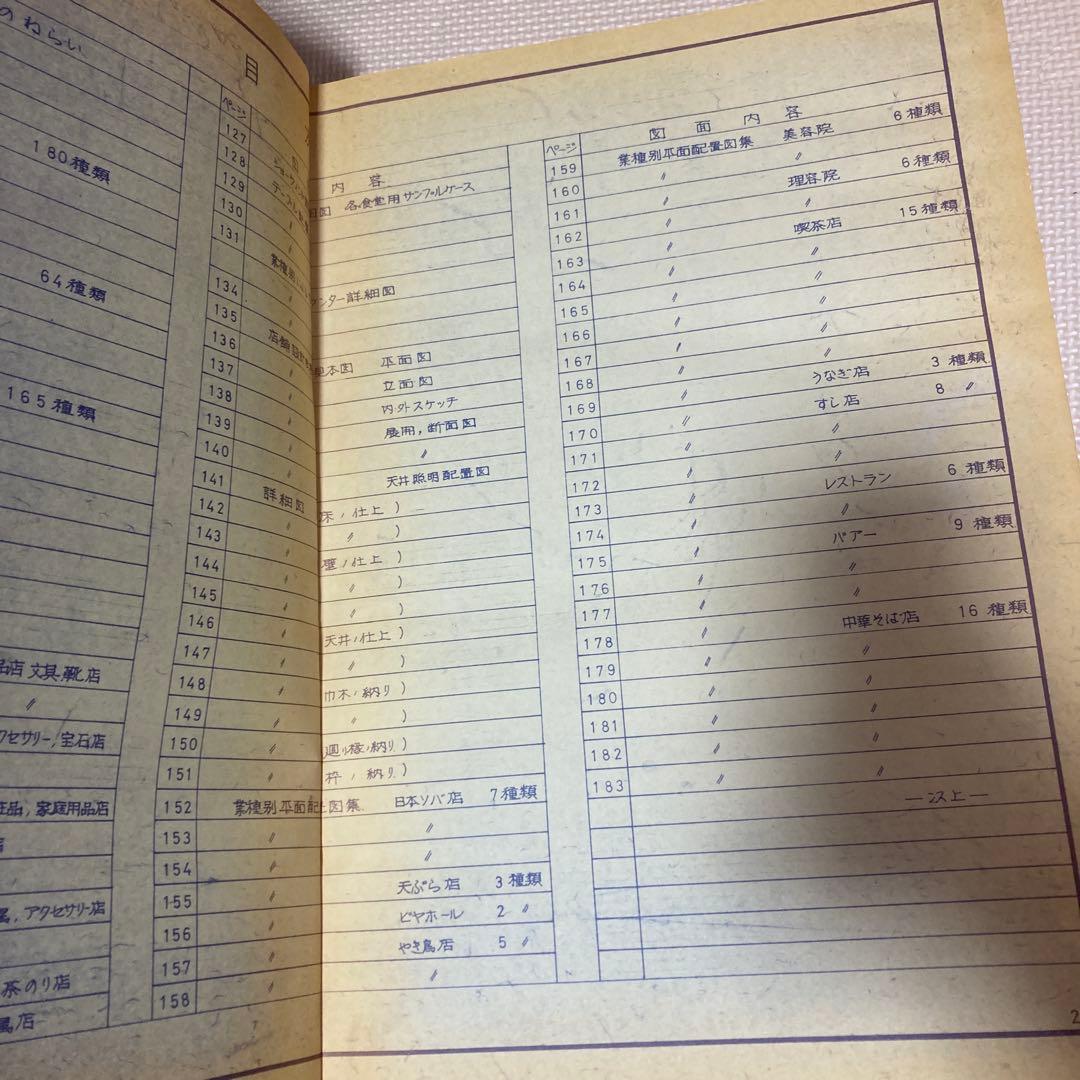 のねらい
180種類
64種類
165種類
品店 文具,靴店
〃
クセサリー,宝石店
粧品,家庭用品店
店
属,アクセサリー店
茶のり店
属店
目
ページ
127
128
129
130
131
134
135
136
137
138
139
140
141
142
143
144
145
146
147
148
149
150
151
152
153
154
155
156
157
158
内容
図 各食堂用サンプルケース
業種別
ンター詳細図
店舗設計
本図 平面図
立面図
内・外スケッチ
展用,断面図
〃
天井照明配置図
詳細図
床ノ仕上)
〃 )
壁ノ仕上)
〃 )
〃 )
天井ノ仕上)
〃 )
巾木ノ納り)
〃 )
廻り椽ノ納り)
枠ノ納り)
業種別平面配置図集 日本ソバ店 7種類
〃 〃
〃 〃
〃 天ぷら店 3種類
〃 ビヤホール 2 〃
〃 やき鳥店 5 〃
〃 〃
ページ 図面内容
159 業種別平面配置図集 美容院 6種類
160 〃 〃
161 〃 理容院 6種類
162 〃 〃
163 〃 喫茶店 15種類
164 〃 〃
165 〃 〃
166 〃 〃
167 〃 〃
168 〃 〃
169 〃 うなぎ店 3種類
170 〃 すし店 8 〃
171 〃 〃
172 〃 〃
173 〃 レストラン 6種類
174 〃 〃
175 〃 バアー 9種類
176 〃 〃
177 〃 〃
178 〃 中華そば店 16種類
179 〃 〃
180 〃 〃
181 〃 〃
182 〃 〃
183 〃 〃
―以上―
2